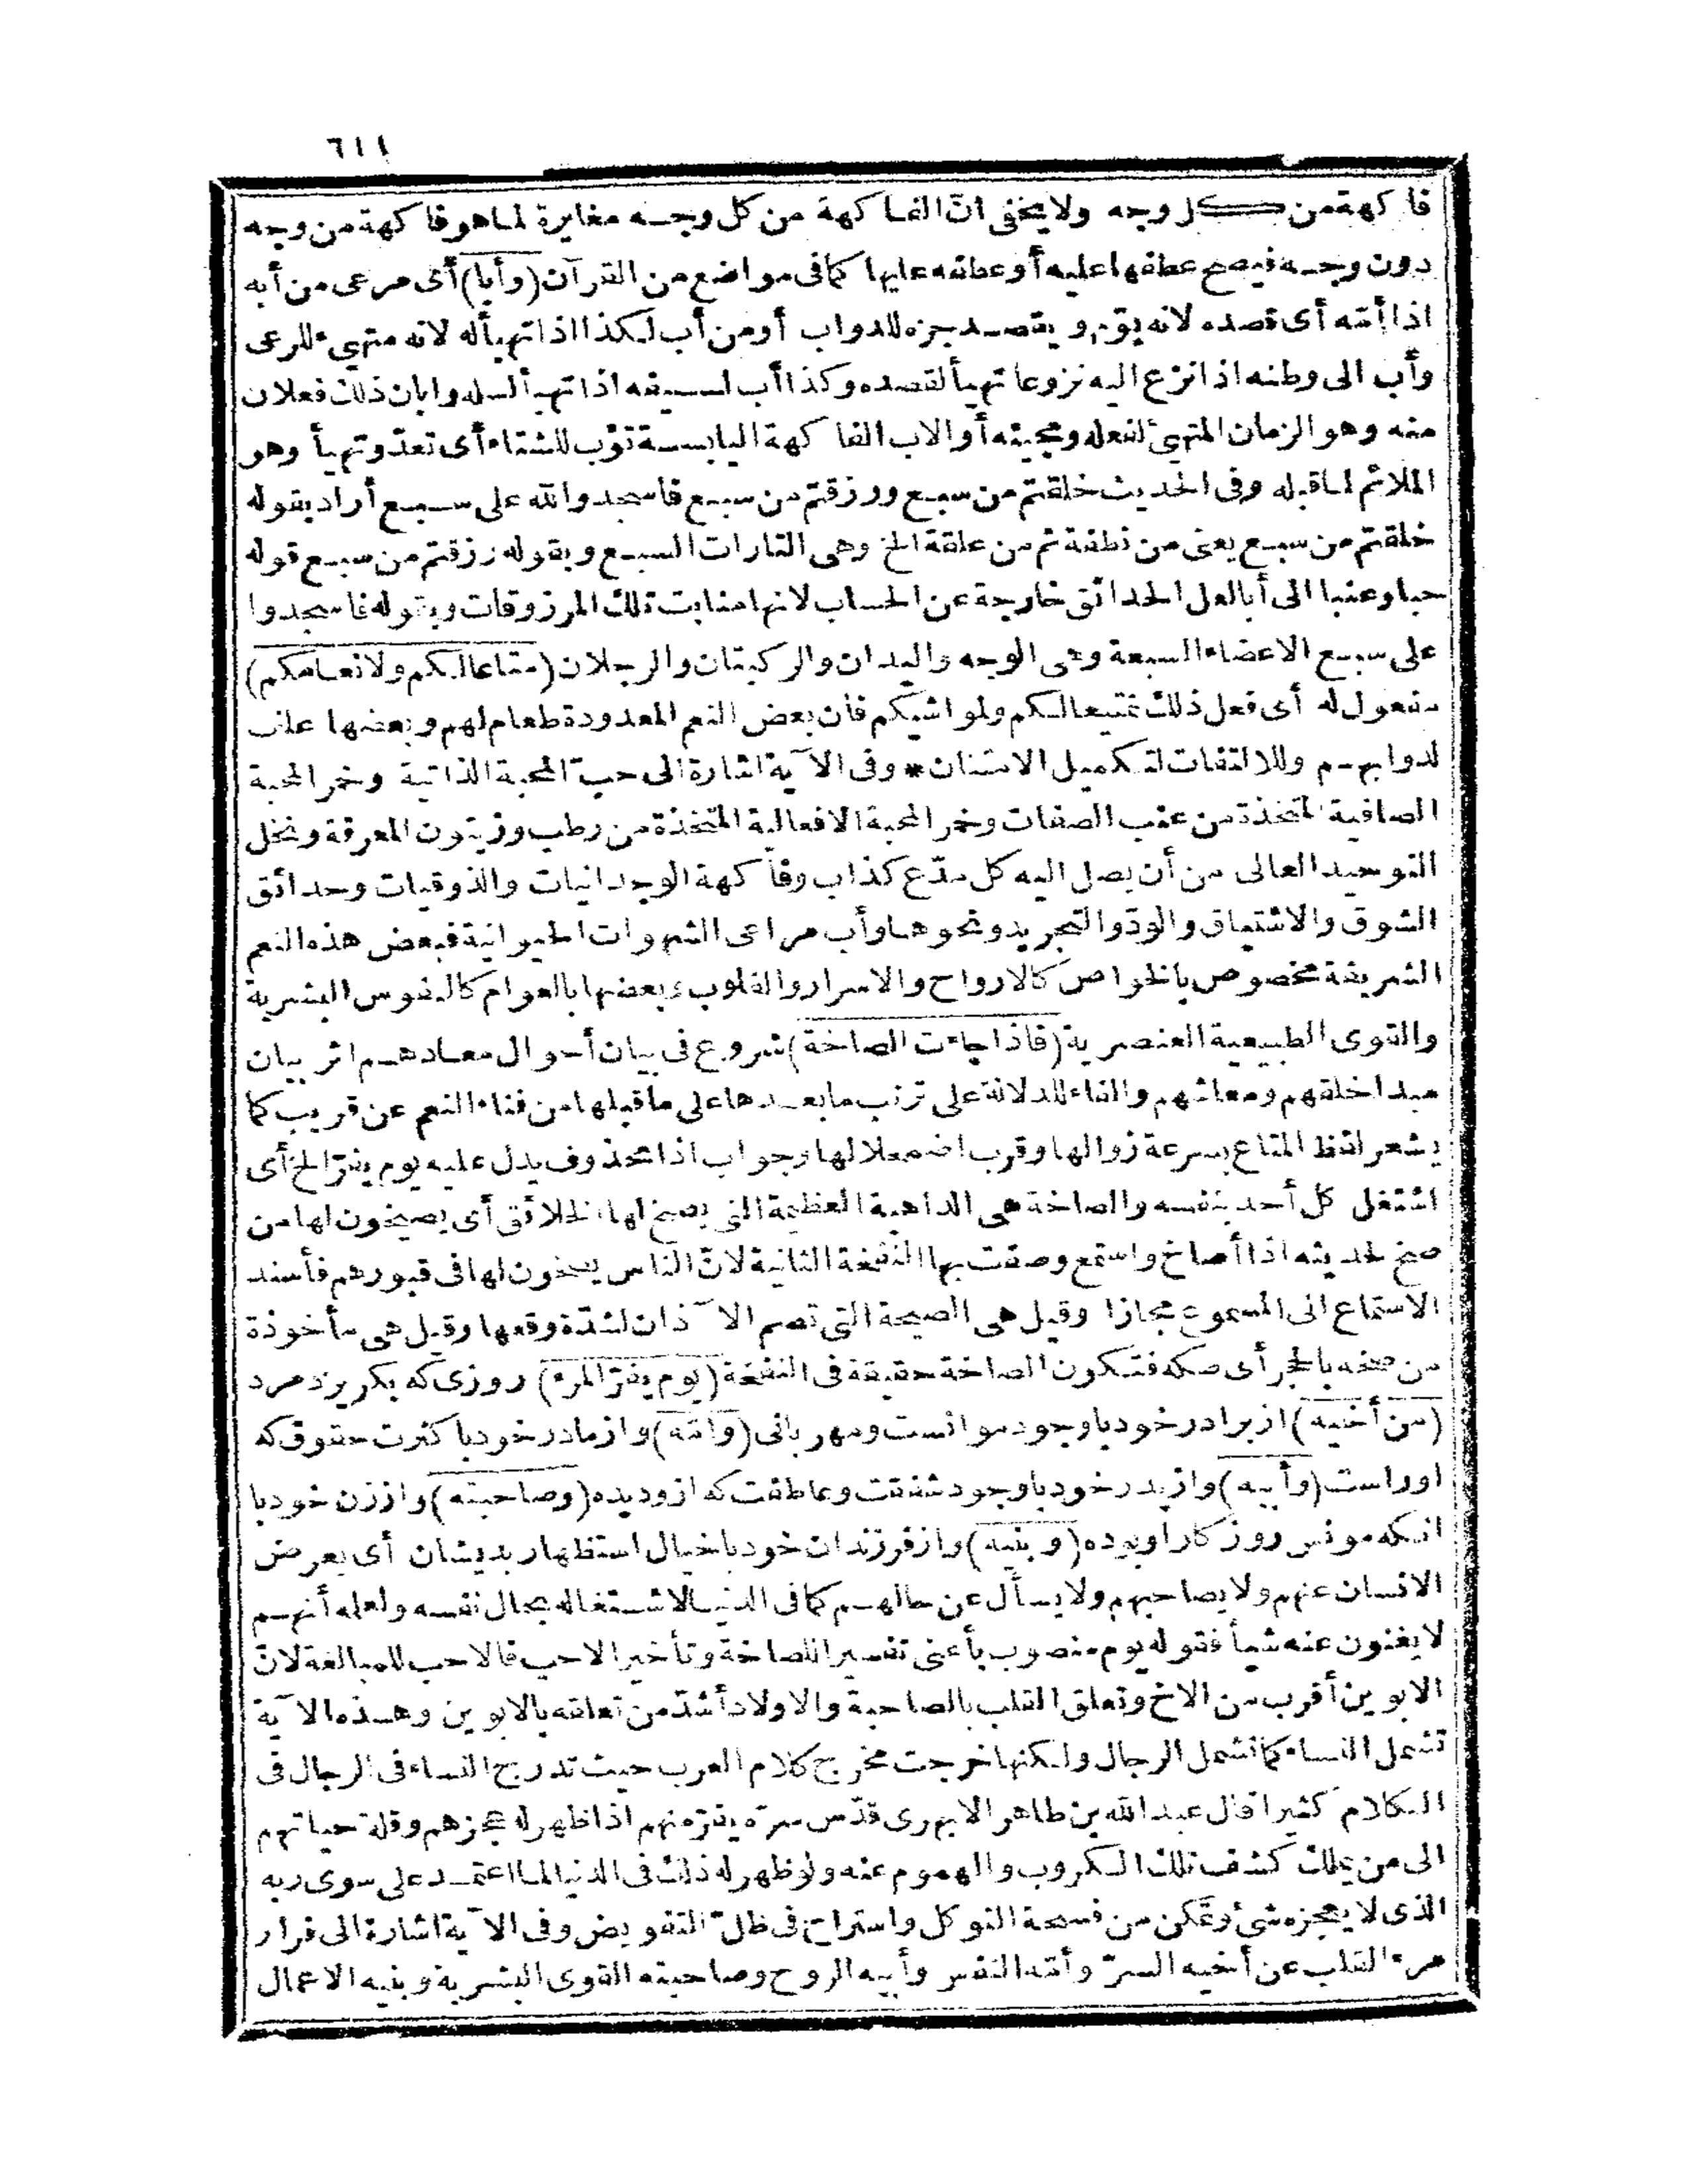 ٦١١
فاكهة من كل وجه ولا يخفى انّ الفاكهة من كل وجه مغايرة لما هو فاكهة من وجه
دون وجه فيصح عطفها عليه أو عطفه عليها كما فى مواضع من القرآن (وأبا) أى مرعى من أبه
اذا أمّه أى قصده لانه يؤمّ ويقصد جزه للدواب أو من أب لكذا اذا تهيأ له لانه متهيء للرعى
وأب الى وطنه اذا نزع اليه نزوعا تهيأ لقصده وكذا أب لسيفه اذا تهيأ لسله وابان ذلك فعلان
منه وهو الزمان المتهيئ لفعله ومجيئه أو الاب الفاكهة اليابسة تؤب للشتاء أى تعدّ وتهيأ وهو
الملائم لما قبله وفى الحديث خلقتم من سبع ورزقتم من سبع فاسجدوا لله على سبع أراد بقوله
خلقتم من سبع يعنى من نطفة ثم من علقة الخ وهى التارات السبع وبقوله رزقتم من سبع قوله
حبا وعنبا الى أبا لعل الحدائق خارجة عن الحساب لانها منابت تلك المرزوقات وبقوله فاسجدوا
على سبع الاعضاء السبعة وهى الوجه واليدان والركبتان والرجلان (متاعا لكم ولانعامكم)
مفعول له أى فعل ذلك تمتيعا لكم ولمواشيكم فان بعض النعم المعدودة طعام لهم وبعضها علف
لدوابهم وللالتفات لتكميل الامتنان * وفى الآية اشارة الى حبّ المحبة الذاتية وخمر المحبة
الصافية المتخذة من عنب الصفات وخمر المحبة الافعالية المتخذة من رطب وزيتون المعرفة ونخل
التوحيد العالى من أن يصل اليه كل مدّع كذاب وفاكهة الوجدانيات والذوقيات وحدائق
الشوق والاشتياق والودّ والتجريد ونحوها وأب مراعى الشهوات الحيوانية فبعض هذه النعم
الشريفة مخصوص بالخواص كالارواح والاسرار والقلوب وبعضها بالعوام كالنفوس البشرية
والقوى الطبيعية العنصرية (فاذا جاءت الصاخة) شروع فى بيان أحوال معادهم اثر بيان
مبدا خلقهم ومعاشهم والفاء للدلالة على ترتب ما بعدها على ما قبلها من فناء النعم عن قريب كما
يشعر لفظ المتاع بسرعة زوالها وقرب اضمحلالها وجواب اذا محذوف يدل عليه يوم يفرّ الخ أى
اشتغل كل أحد بنفسه والصاخة هى الداهية العظيمة التى يصخ لها الخلائق أى يصيخون لها من
صخ لحديثه اذا أصاخ واستمع وصفت بها النفخة الثانية لانّ الناس يصخون لها فى قبورهم فأسند
الاستماع الى المسموع مجازا وقيل هى الصيحة التى تصم الآذان لشدّة وقعها وقيل هى مأخوذة
من صخه بالحجر أى صكه فتكون الصاخة حقيقة فى النفخة (يوم يفرّ المرء) روزى كه بكريزد مرد
(من أخيه) از برادر خود با وجود موانست ومهربانى (وامّه) واز مادر خود با كثرت حقوق كه
اوراست (وأبيه) واز پدر خود با وجود شفقت وعاطفت كه ازو ديده (وصاحبته) واز زن خود با
انكه مونس روزكار او بوده (وبنيه) واز فرزندان خود با خيال استظهار بديشان أى يعرض
الانسان عنهم ولا يصاحبهم ولا يسأل عن حالهم كما فى الدنيا لاشتغاله بحال نفسه ولعله أنهم
لا يغنون عنه شيأ فقوله يوم منصوب بأعنى تفسيرا للصاخة وتأخير الاحب فالاحب للمبالغة لانّ
الابوين أقرب من الاخ وتعلق القلب بالصاحبة والاولاد أشدّ من تعلقه بالابوين وهذه الآية
تشمل النساء كما تشمل الرجال ولكنها خرجت مخرج كلام العرب حيث تدرج النساء فى الرجال فى
الكلام كثيرا قال عبد الله بن طاهر الابهرى قدّس سرّه يفرّ منهم اذا ظهر له عجزهم وقلة حياتهم
الى من يملك كشف تلك الكروب والهموم عنه ولو ظهر له ذلك فى الدنيا لما اعتمد على سوى ربه
الذى لا يعجزه شئ وتمكن من فسحة التوكل واستراح فى ظلّ التفويض وفى الآية اشارة الى فرار
مرء القلب عن أخيه السرّ وأمّه النفس وأبيه الروح وصاحبته القوى البشرية وبنيه الاعمال